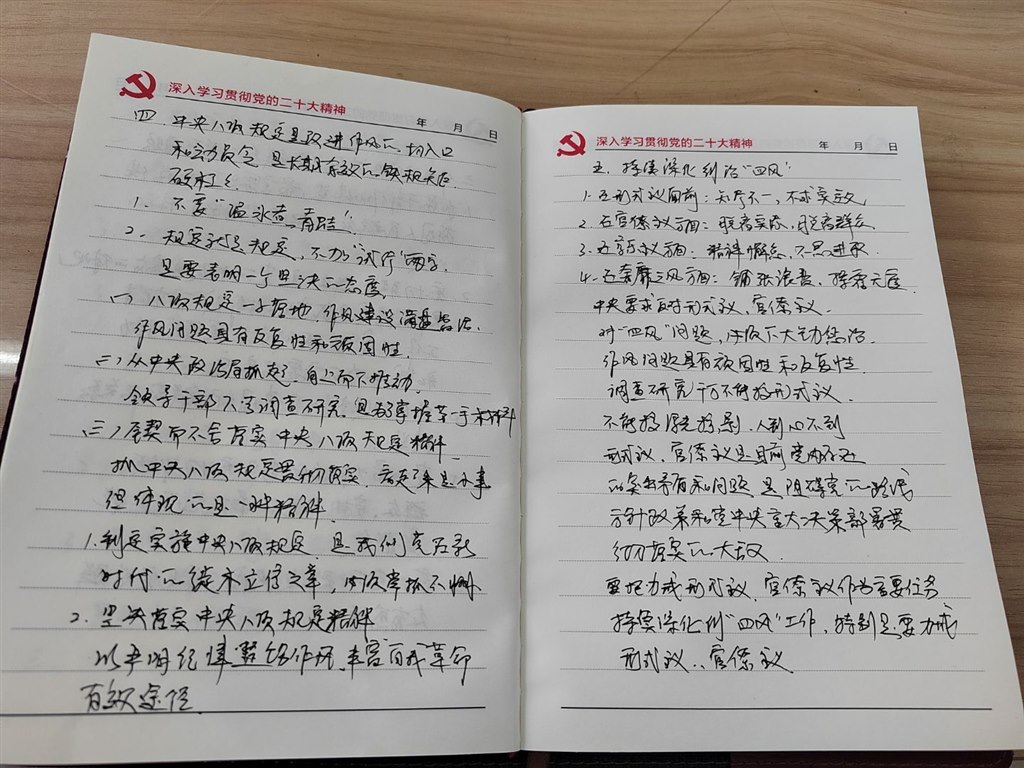 深入学习贯彻党的二十大精神
年 月 日
四 中央八项规定是改进作风的切入口
和动员令 是长期有效的铁规矩
硬杠杠
1. 不要“温水煮青蛙”
2. 规定就是规定，不加“试行”两字
是要表明一个坚决的态度
(一) 八项规定一子落地，作风建设满盘皆活
作风问题具有反复性和顽固性.
(二) 从中央政治局抓起，自上而下推动
领导干部 调查研究，掌握第一手材料
(三) 锲而不舍落实中央八项规定精神
抓中央八项规定贯彻落实，看起来是小事
但体现的是一种精神
1. 制定实施中央八项规定，是我们党在新
时代的徙木立信之举，必须常抓不懈
2. 坚决落实中央八项规定精神
以严明纪律整饬作风，丰富自我革命
有效途径
深入学习贯彻党的二十大精神
年 月 日
五. 持续深化纠治“四风”
1. 在形式主义方面：知行不一，不求实效
2. 在官僚主义方面：脱离实际，脱离群众
3. 在享乐主义方面：精神懈怠，不思进取
4. 在奢靡之风方面：铺张浪费，挥霍无度
中央要求反对形式主义、官僚主义
对“四风”问题，必须下大功夫惩治
作风问题具有顽固性和反复性
调查研究千万不能搞形式主义
不能搞 ，人到心不到
形式主义、官僚主义是目前党内存在
的突出矛盾和问题 是阻碍党的路线
方针政策和党中央重大决策部署贯
彻落实的大敌
要把力戒形式主义、官僚主义作为重要任务
持续深化纠“四风”工作，特别是要力戒
形式主义、官僚主义